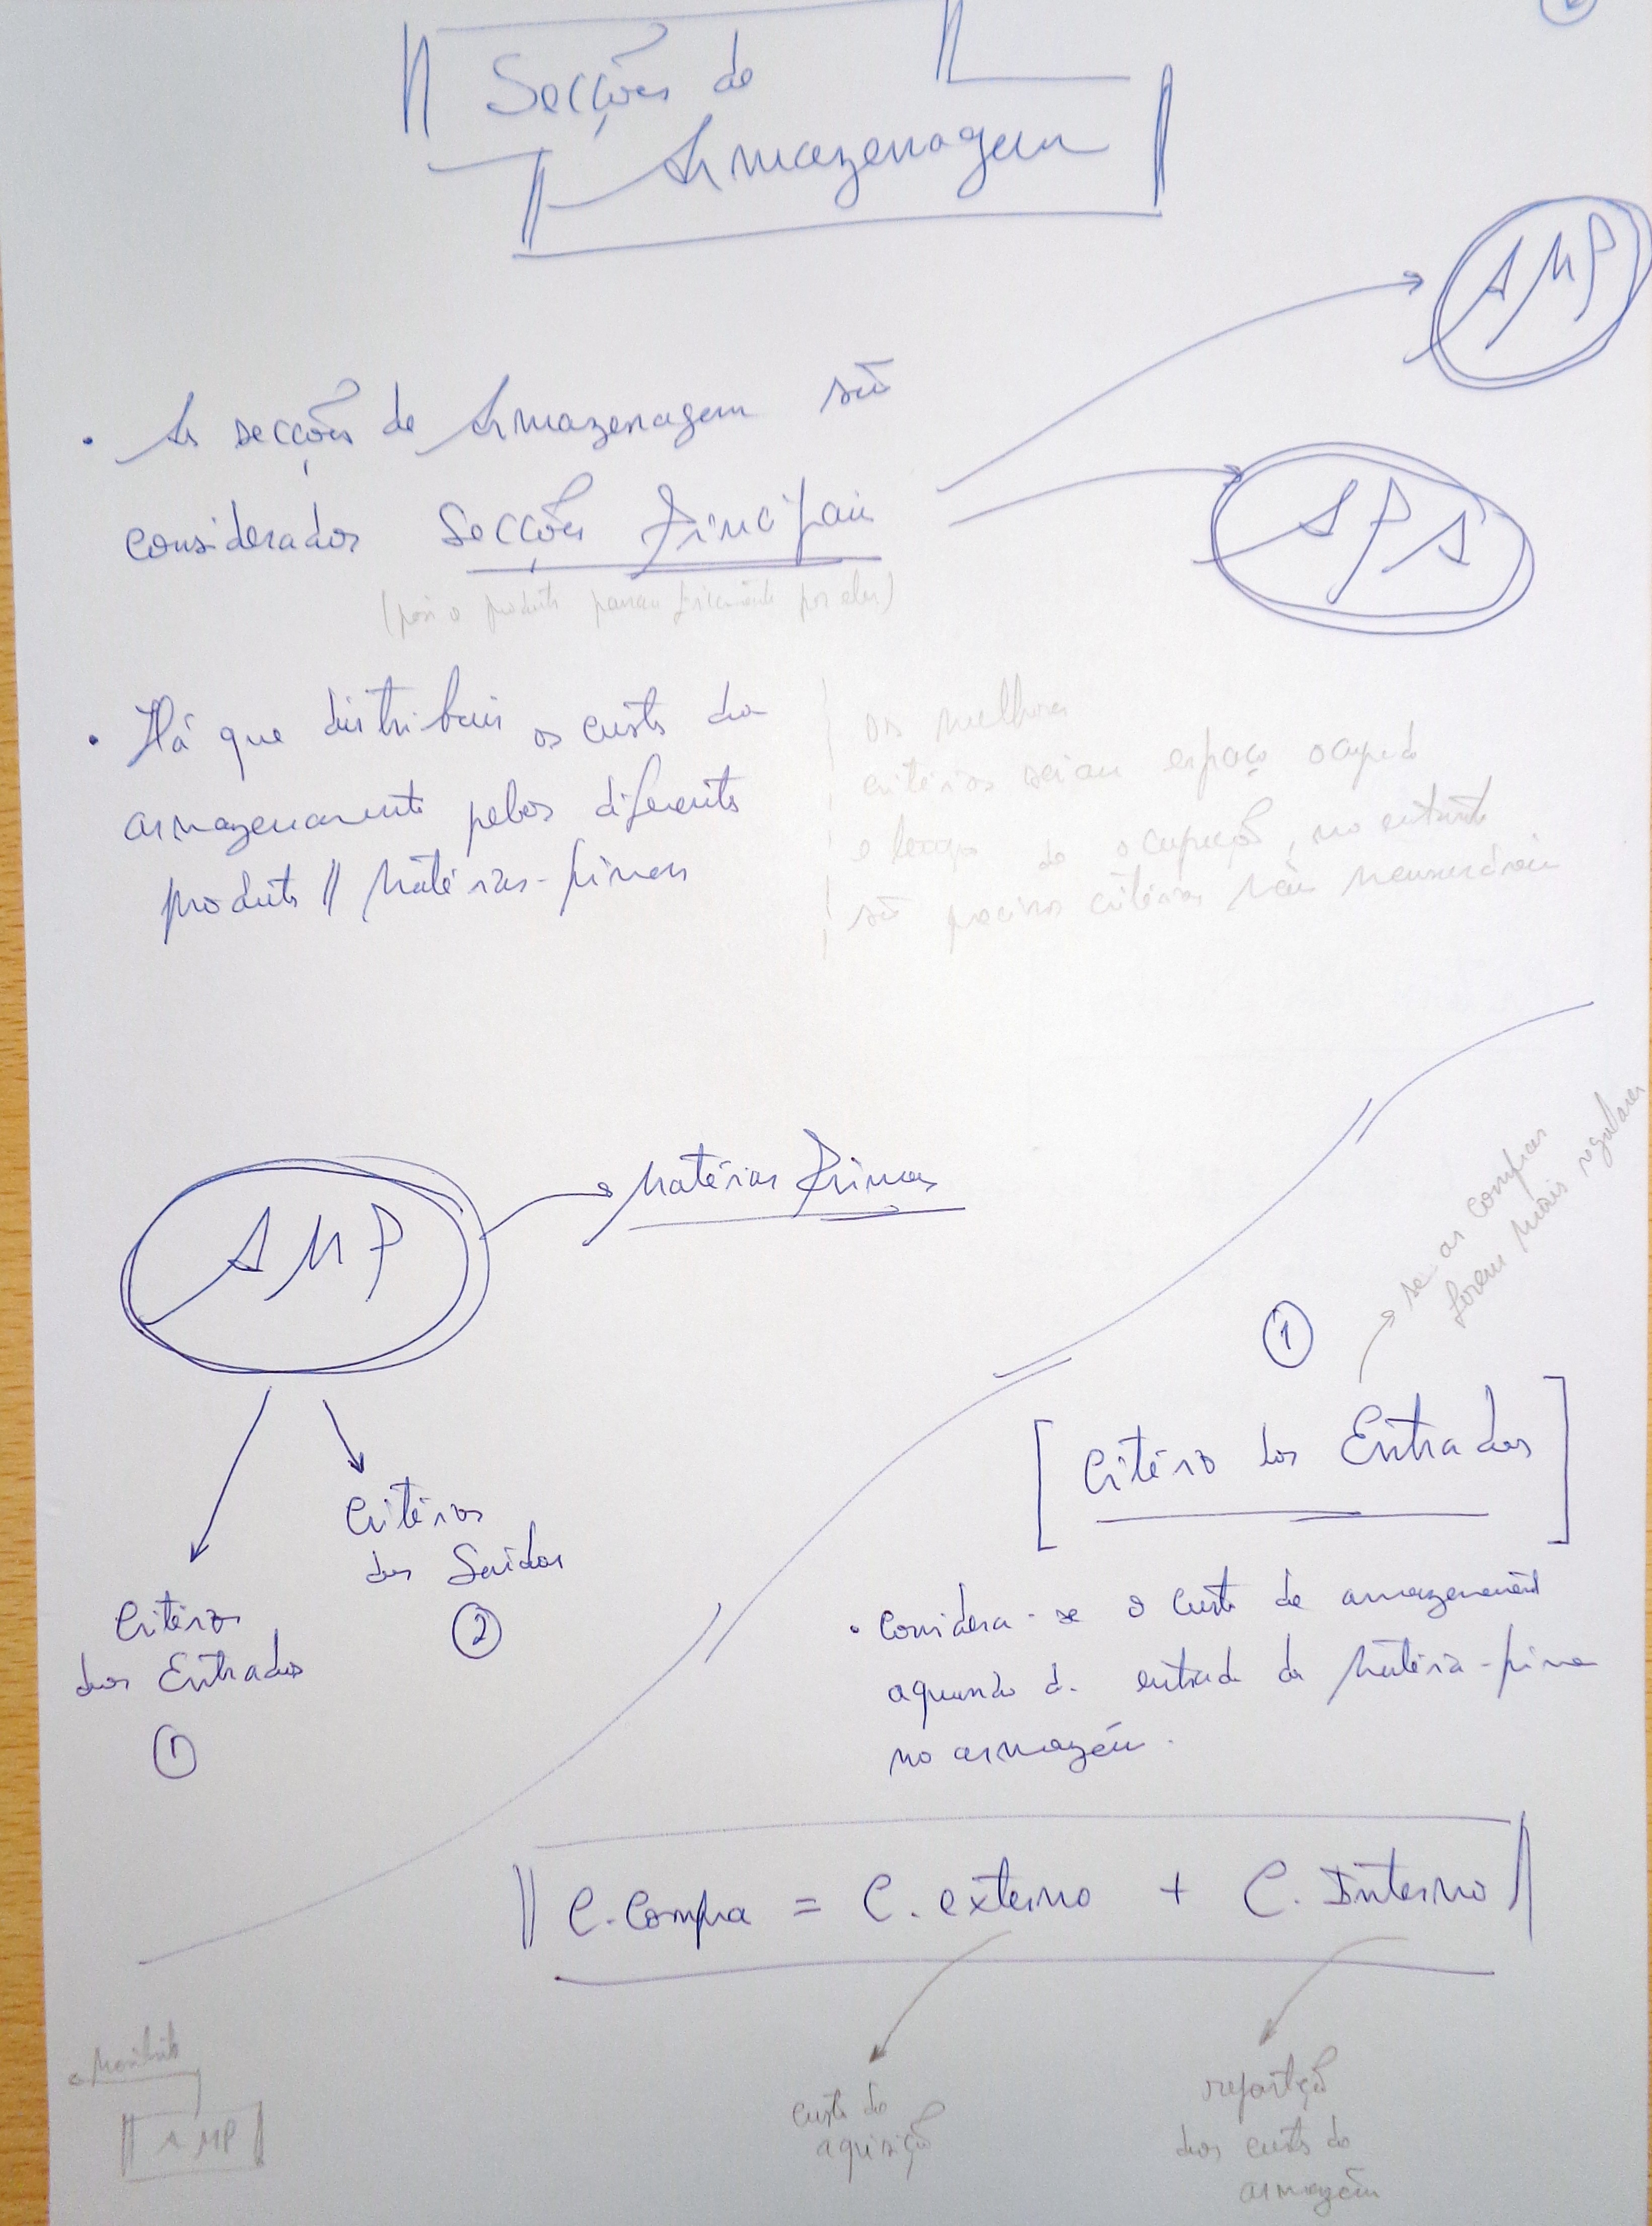 Secções de
Armazenagem
AMP
• As secções de Armazenagem são
consideradas Secções Principais
APA
(pois o produto passam fisicamente por elas)
• Há que distribuir os custos do
armazenamento pelos diferentes
produtos // Matérias-primas
os melhores
critérios seriam espaço ocupado
e tempo de ocupação, no entanto
são critérios não mensuráveis
AMP
Matérias Primas
Critérios
das Saídas
②
Critérios
das Entradas
①
se as compras
forem mais regulares
①
[Critério das Entradas]
• Considera-se o custo de armazenamento
aquando da entrada da Matéria-prima
no armazém.
C. Compra = C. externo + C. Interno
custo de
aquisição
repartição
dos custos do
armazém
AMP